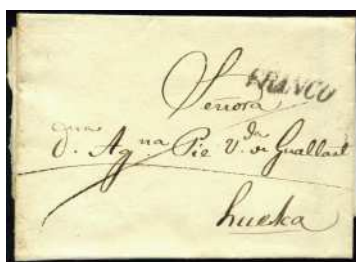 FRANCO
Señora
d. Ag na Pie V. da de Guallart
hueska